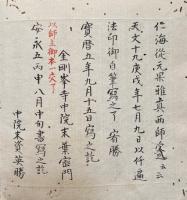 仁海從元杲雅真両師受云云
天文十九庚戌年七月九日以仟遍
法印御自筆寫之了 宥勝
寶暦五年九月十五日寫之訖
金剛峯寺中院末葉密門
以師主御本一交了
安永五丙申八月中旬書寫之訖
中院末資英勝